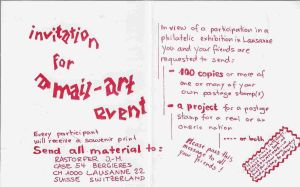 invitation
for
a mail-art
event
Every participant
will receive a souvenir print
Send all material to:
RASTORFER J-M.
CASE 54 BERGIERES
CH 1000 LAUSANNE 22
SUISSE SWITZERLAND
In view of a participation in a
philatelic exhibition in Lausanne
you and your friends are
requested to send:
- 100 copies or more of
one or many of your
own postage stamp(s)
- a project for a postage
stamp for a real or an
oneric nation
.... or both
Please pass this
message to all
your friends!